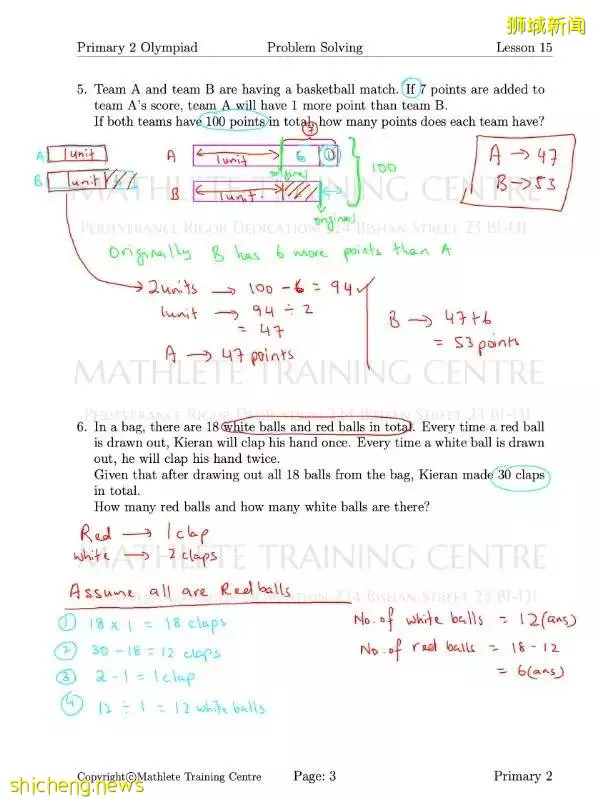 狮城新闻
Primary 2 Olympiad Problem Solving Lesson 15
5. Team A and team B are having a basketball match. If 7 points are added to
team A's score, team A will have 1 more point than team B.
If both teams have 100 points in total, how many points does each team have?
7
A 1 unit
A 1 unit 6 1
original
B 1 unit
B 1 unit
original
100
A → 47
B → 53
MATHLETE TRAINING CENTRE
PERSEVERANCE RIGOR DEDICATION 224 BISHAN STREET 23 B1-131
Originally B has 6 more points than A
2 units → 100 - 6 = 94 ✓
1 unit → 94 ÷ 2
= 47
A → 47 points
B → 47+6
= 53 points
MATHLETE TRAINING CENTRE
PERSEVERANCE RIGOR DEDICATION 224 BISHAN STREET 23 B1-131
6. In a bag, there are 18 white balls and red balls in total. Every time a red ball
is drawn out, Kieran will clap his hand once. Every time a white ball is drawn
out, he will clap his hand twice.
Given that after drawing out all 18 balls from the bag, Kieran made 30 claps
in total.
How many red balls and how many white balls are there?
Red → 1 clap
white → 2 claps
MATHLETE TRAINING CENTRE
PERSEVERANCE RIGOR DEDICATION 224 BISHAN STREET 23 B1-131
Assume all are Red balls
1 18 x 1 = 18 claps
2 30 - 18 = 12 claps
3 2 - 1 = 1 clap
4 12 ÷ 1 = 12 white balls
No. of white balls = 12 (ans)
No. of red balls = 18 - 12
= 6 (ans)
Copyright©Mathlete Training Centre Page: 3 Primary 2
shicheng.news